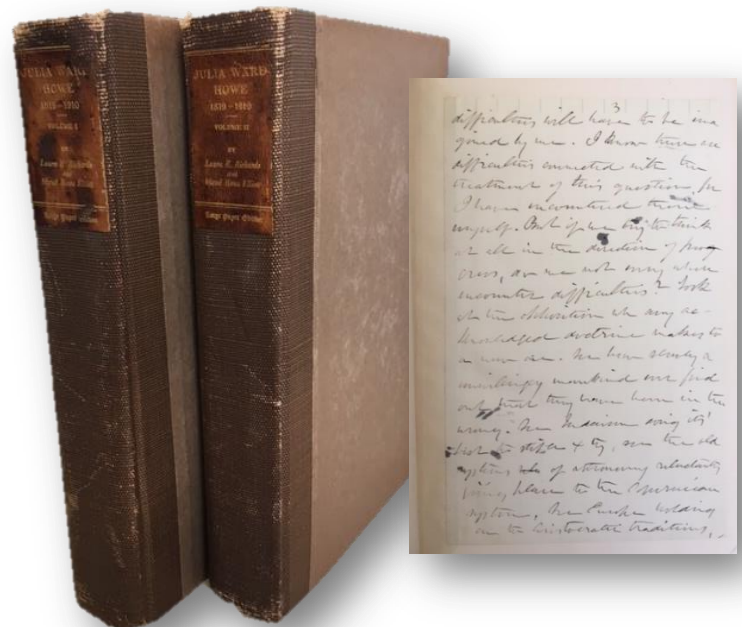 JULIA WARD
HOWE
1819-1910
VOLUME I
BY
Laura E. Richards
and
Maud Howe Elliott
Large Paper Edition
JULIA WARD
HOWE
1819-1910
VOLUME II
BY
Laura E. Richards
and
Maud Howe Elliott
Large Paper Edition
3
difficulties will have to be ima
gined by me. I know there are
difficulties connected with the
treatment of this question, for
I have encountered them
myself. But if we try to think
at all in the direction of prog
ress, do we not every where
encounter difficulties? Look
at the opposition wh any ac-
knowledged doctrine makes to
a new one. See how slowly &
unwillingly mankind ever find
out that they have been in the
wrong. See Judaism doing its
best to stifle Xty, see the old
systems of astronomy reluctantly
giving place to the Copernican
system, See Europe holding
on to Aristocratic traditions,